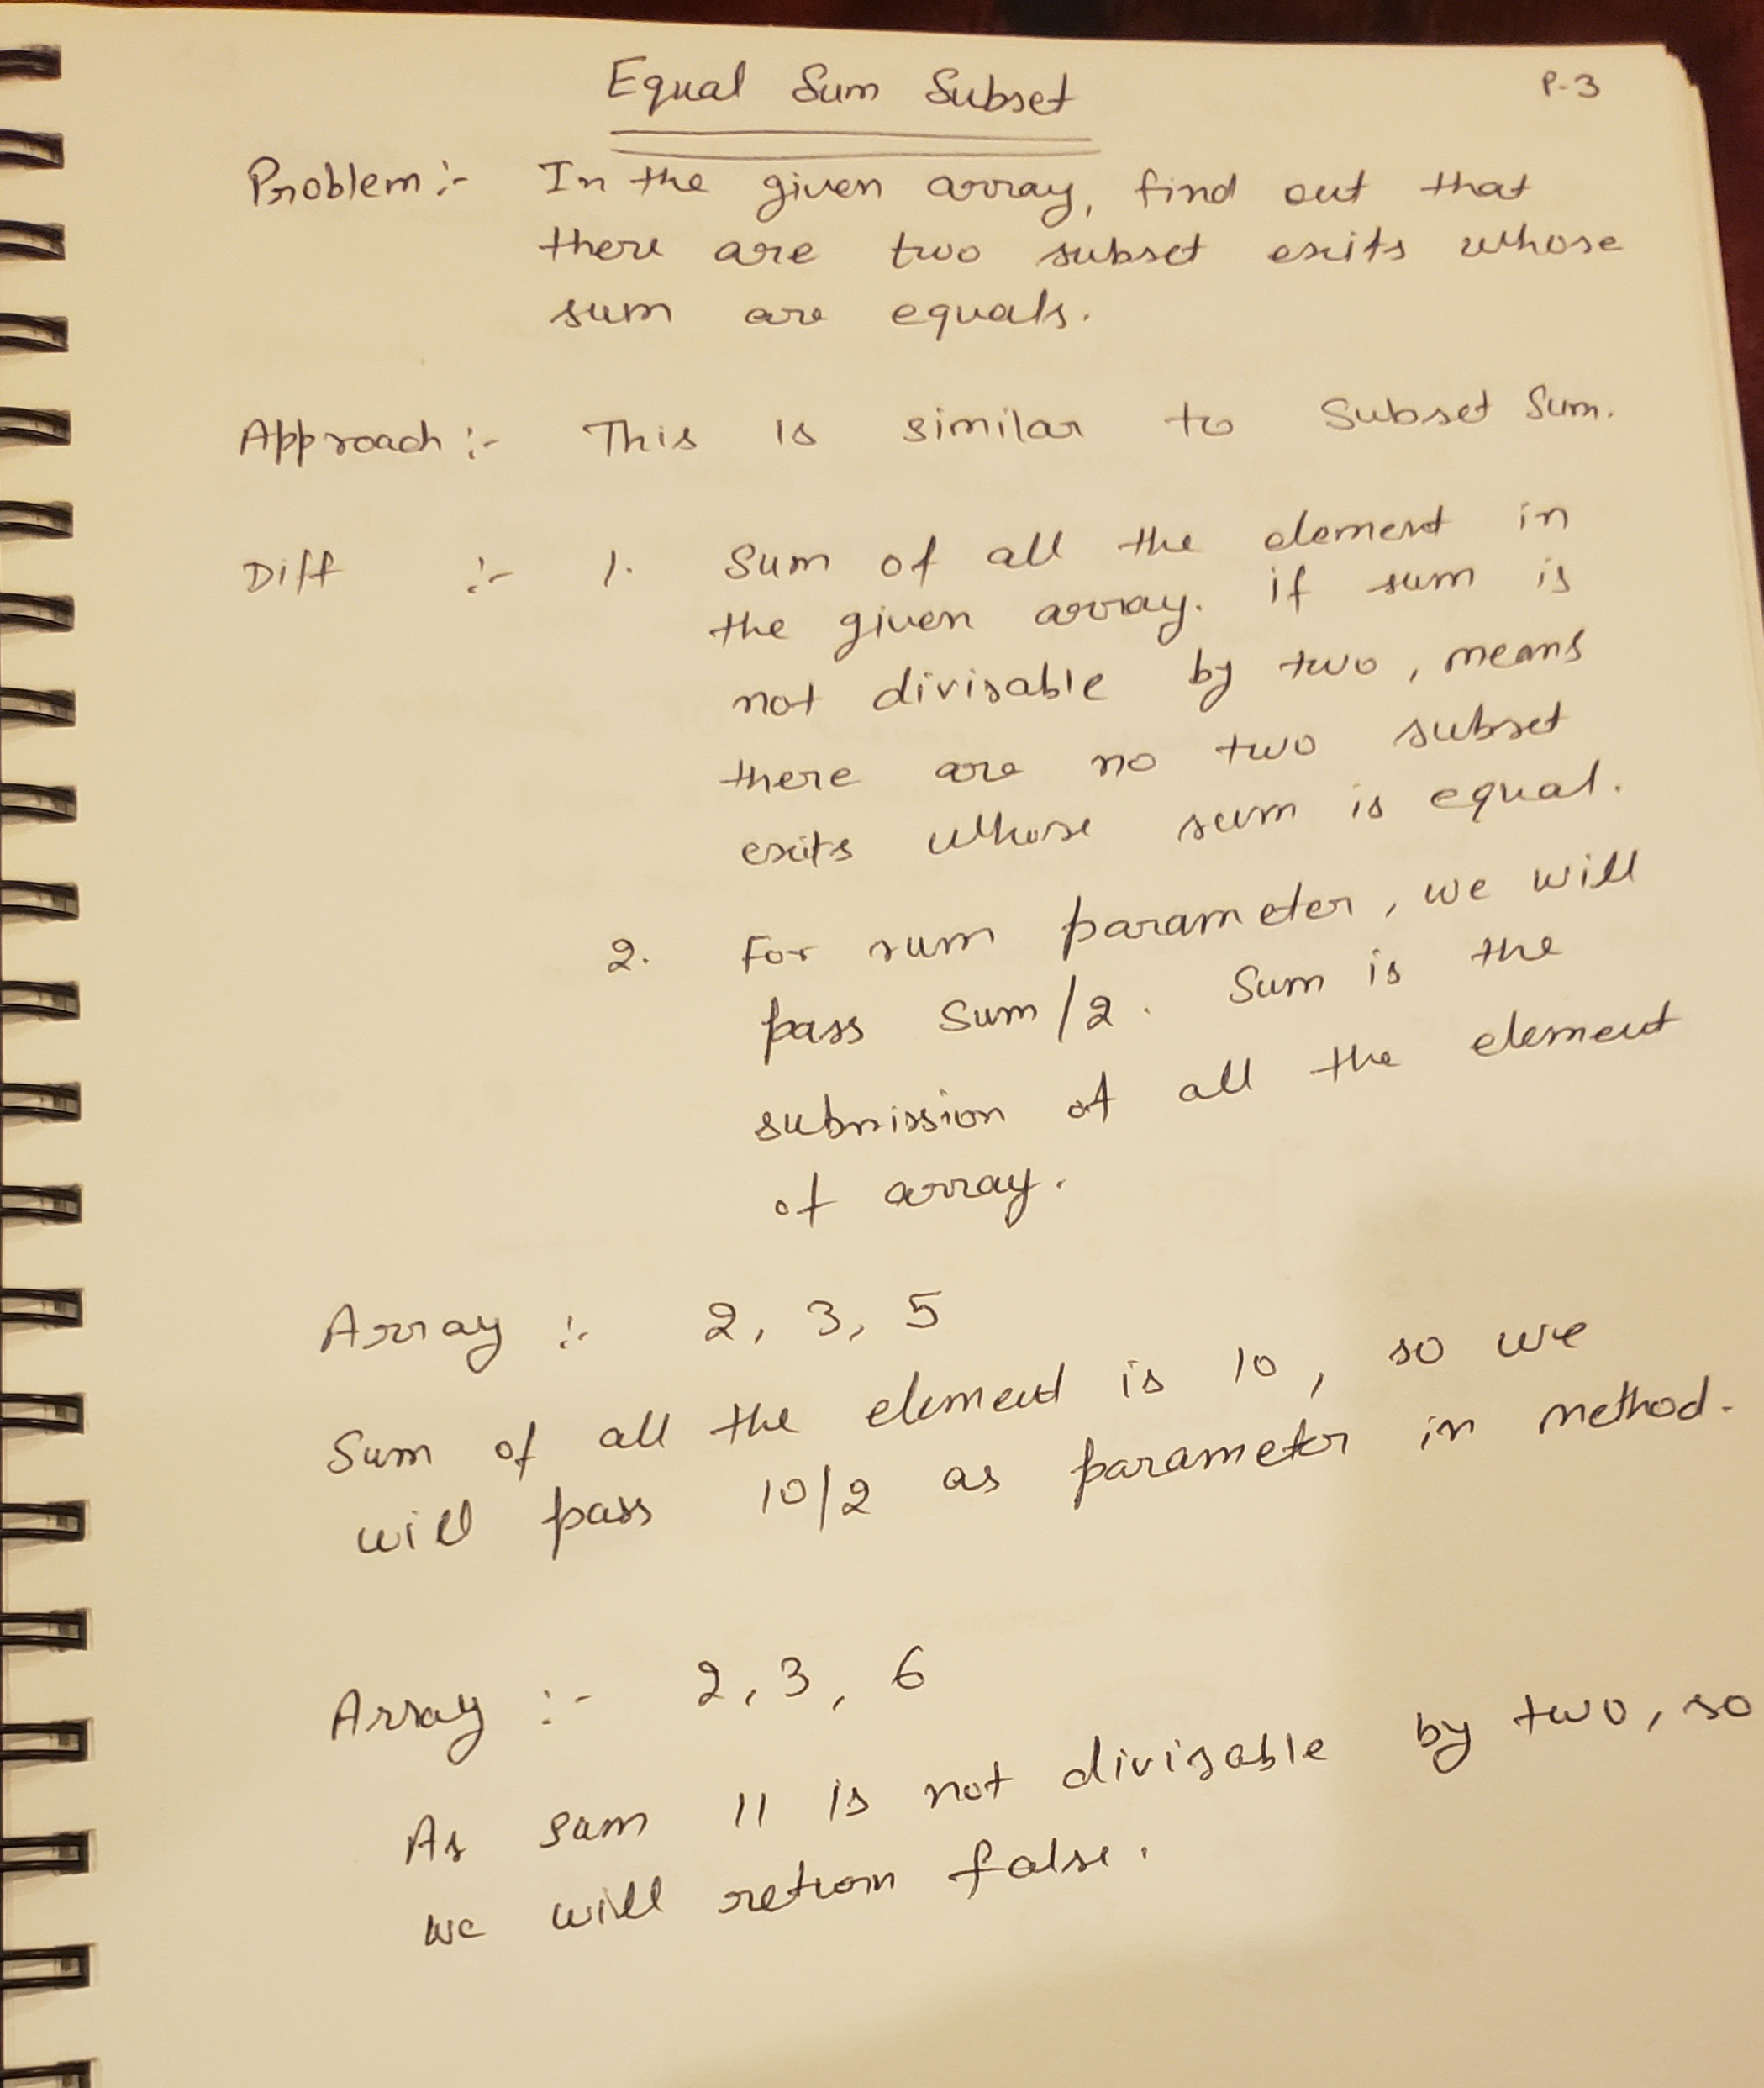 Equal Sum Subset
P-3
Problem :- In the given array, find out that
there are two subset exits whose
sum are equals.
Approach :- This is similar to Subset Sum.
Diff :- 1. Sum of all the element in
the given array. if sum is
not divisable by two, means
there are no two subset
exits whose sum is equal.
2. For sum parameter, we will
pass Sum/2. Sum is the
submission of all the element
of array.
Array :- 2, 3, 5
Sum of all the element is 10, so we
will pass 10/2 as parameter in method.
Array :- 2, 3, 6
As sum 11 is not divisable by two, so
we will return false.